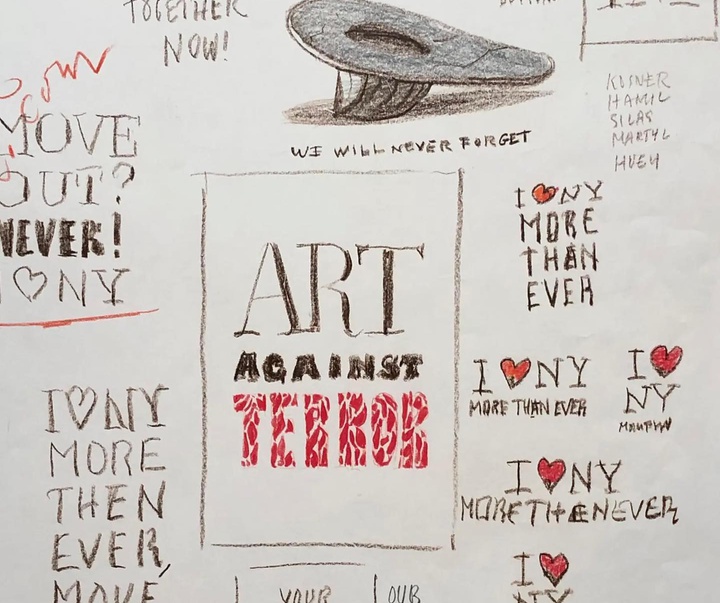 TOGETHER
NOW!
MOVE
OUT?
NEVER!
I ♡ NY
I ♡ NY
MORE
THEN
EVER,
MOVE
WE WILL NEVER FORGET
ART
AGAINST
TERROR
YOUR
OUR
KUSNER
HAMIL
SILAS
MARTYL
HUEY
I ♥ NY
MORE
THAN
EVER
I ♥ NY
MORE THAN EVER
I ♥
NY
I ♥ NY
MORE THEN EVER
I ♥
NY